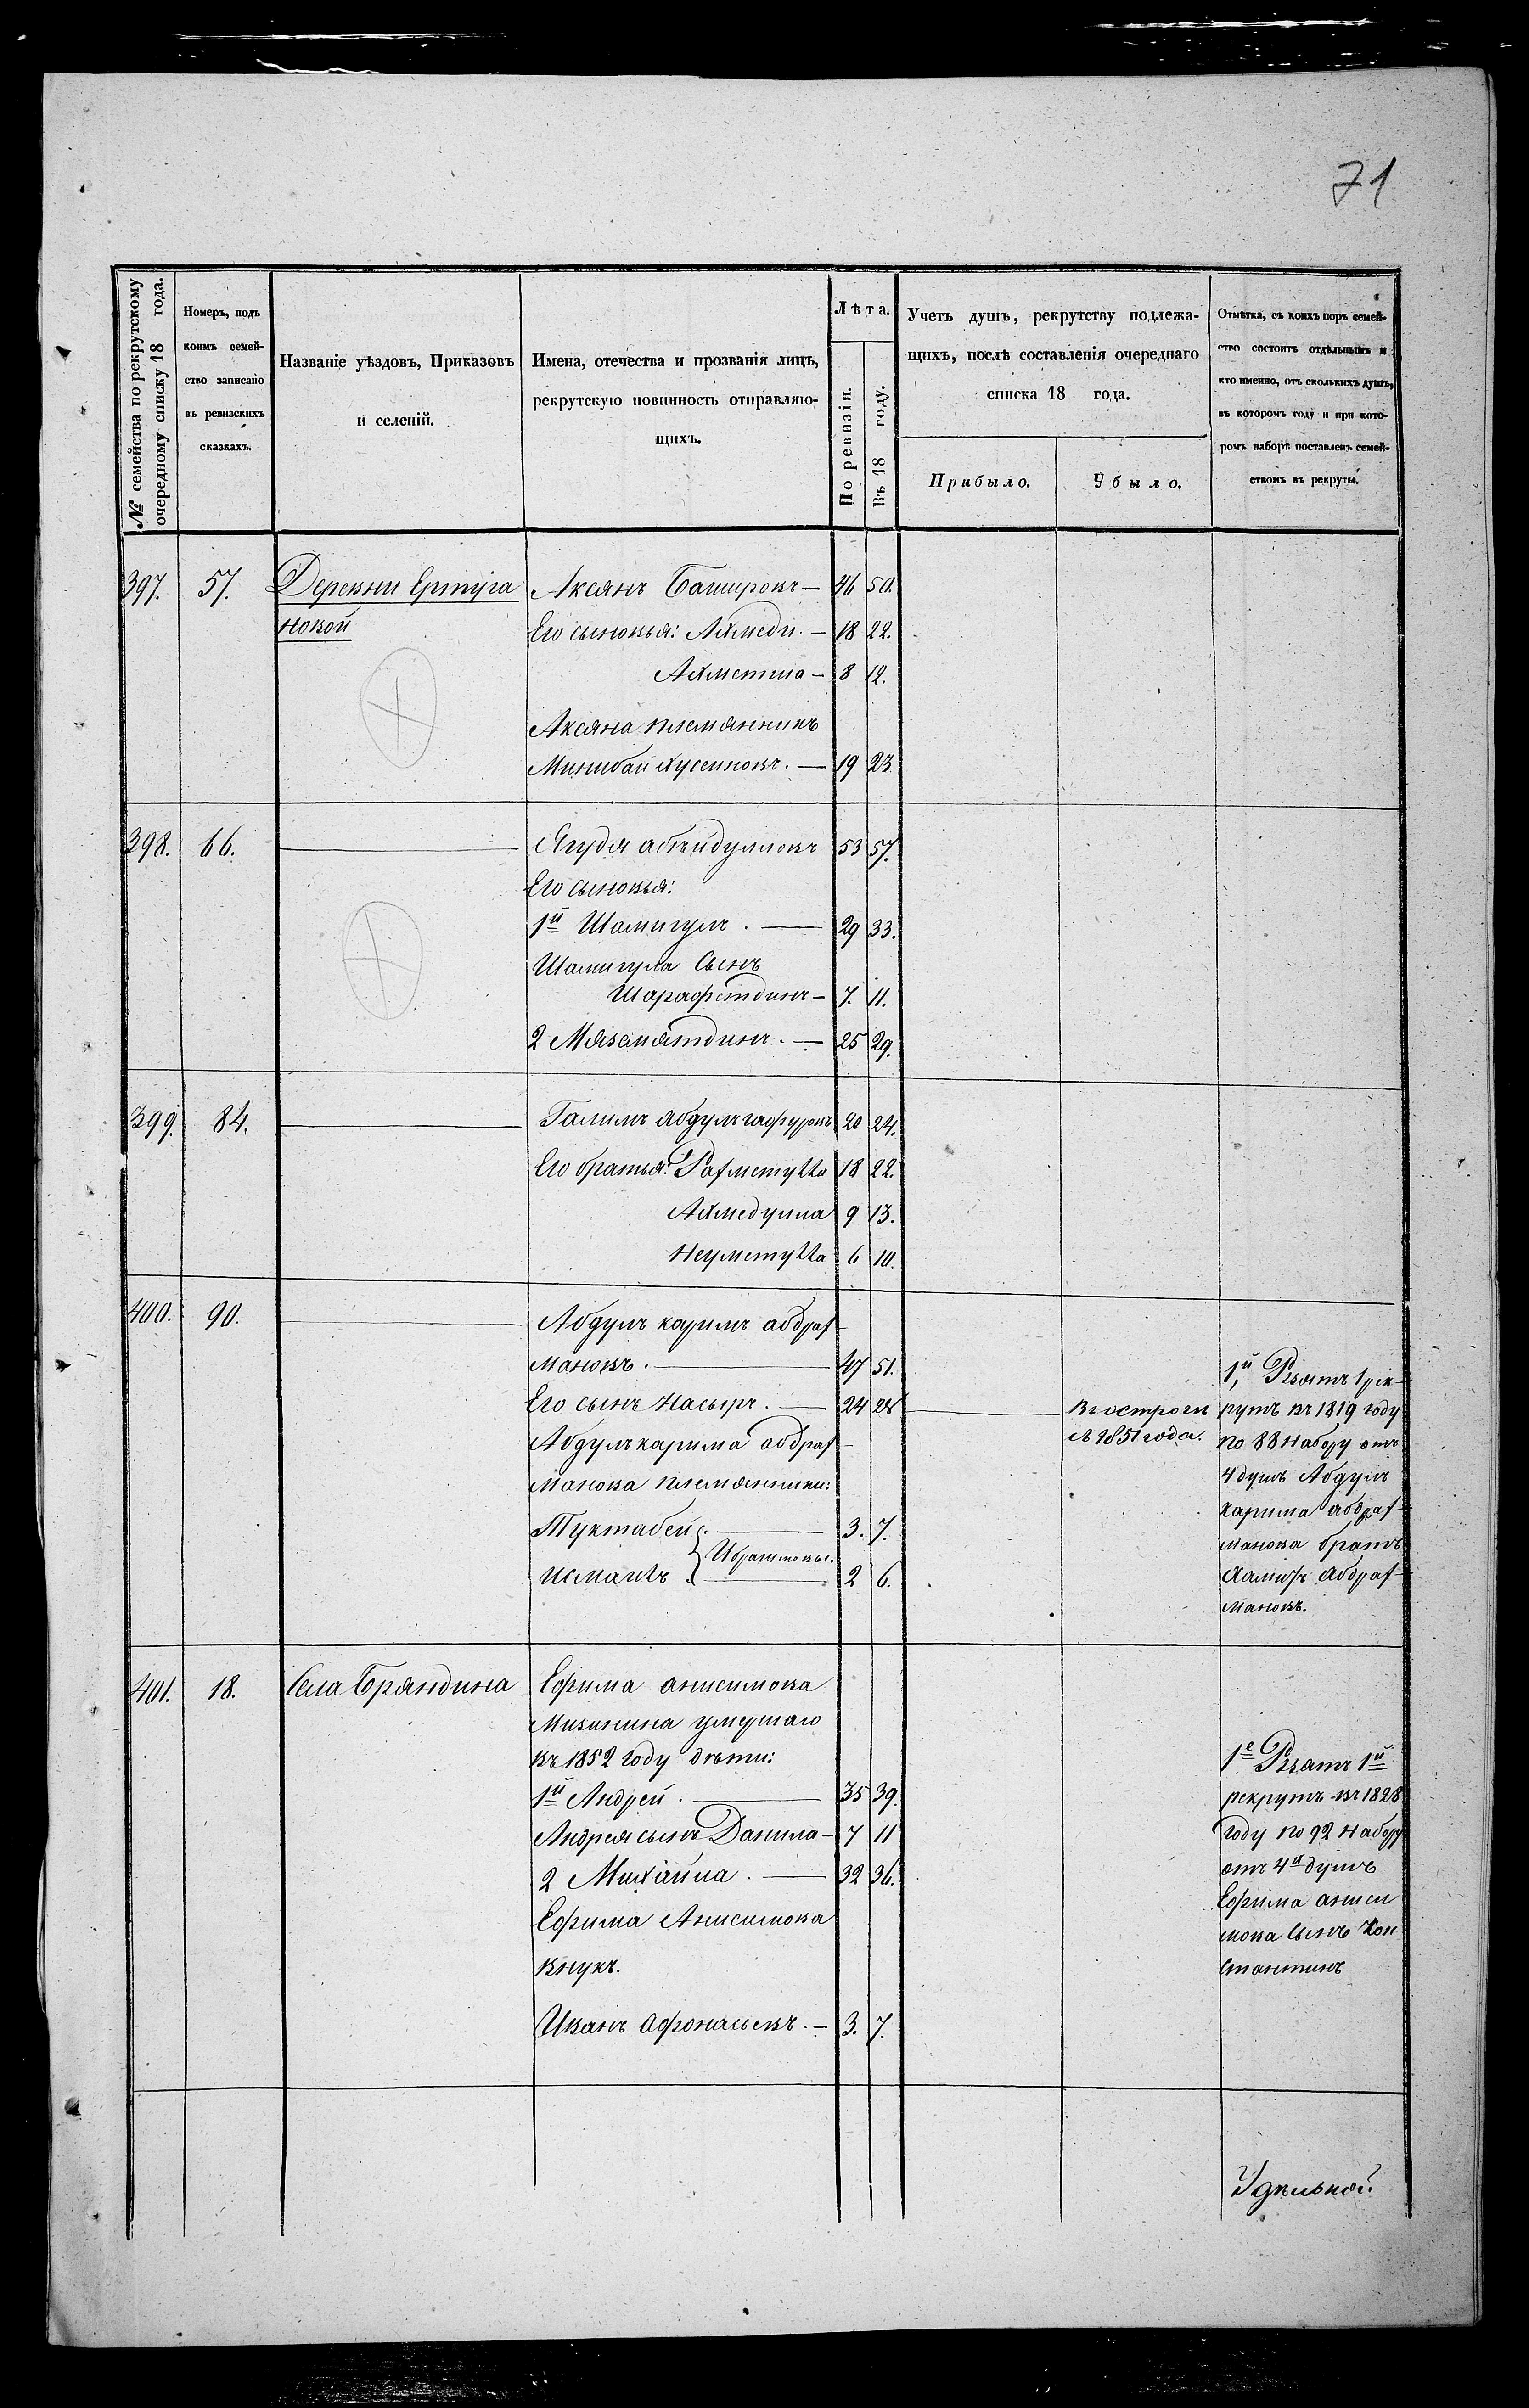 71
№ семейства по рекрутскому
очередному списку 18 года.
Номеръ, подъ
коимъ семей-
ство записано
въ ревизскихъ
сказкахъ.
Названіе уѣздовъ, Приказовъ
и селеній.
Имена, отечества и прозванія лицъ,
рекрутскую повинность отправляю-
щихъ.
Лѣта.
По ревизіи.
Въ 18 году.
Учетъ душъ, рекрутству подлежа-
щихъ, послѣ составленія очереднаго
списка 18 года.
Прибыло.
Убыло.
Отмѣтка, съ коихъ поръ семей-
ство состоитъ отдѣльнымъ и
кто именно, отъ сколькихъ душъ,
въ которомъ году и при кото-
ромъ наборѣ поставленъ семей-
ствомъ въ рекруты.
397. 57. Деревни Ертуга Аксянъ Башировъ — 46 50.
новой Его сыновья: Ахмеди. — 18 22.
Ахметша — 8 12.
Аксяна племянникъ
Минибай Хусеиновъ. — 19 23.
398. 66. — Ягудя абѣйдулловъ 53 57.
Его сыновья:
1й Шамигулъ. — 29 33.
Шамигула Сынъ
Шарафетдинъ — 7. 11.
2 Мязамятдинъ. — 25 29.
399. 84. — Галимъ абдулъгафуровъ 20 24.
Его братья: Рахметулла 18 22.
Ахмедулла 9 13.
Неуметулла 6 10.
400. 90. — Абдулъ каримъ абдрах-
мановъ. — 47 51.
Его сынъ Насыръ. — 24 28 — въ острогѣ
съ 1851 года.
Абдулъкарима абдрах-
манова племянники:
Туктабей — 3. 7.
Ибрагимовы.
Исмаилъ — 2 6.
1й, Взятъ 1 рек-
рутъ въ 1819 году
по 88 набору отъ
4 душъ Абдулъ
карима абдрах-
манова братъ
Халитъ абдрах-
мановъ.
401. 18. Села Бряндина Ефима анисимова
умершаго
въ 1852 году дѣти:
1й Андрей. — 35 39.
Андрея сынъ Данила — 7 11
2 Михайла. — 32 36.
Ефима Анисимова
внукъ.
Иванъ Афонасьевъ. — 3. 7.
1е Взятъ 1й
рекрутъ въ 1828
году по 92 набору
отъ 4й душъ
Ефима аниси
мова сынъ Кон
стантинъ
Удѣльной